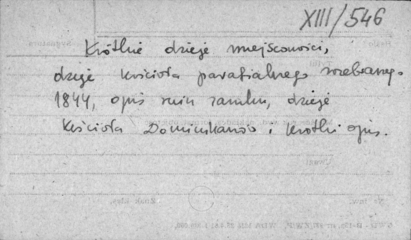 XIII/546
Krótkie dzieje miejscowości,
dzieje kościoła parafialnego rozebranego
1844, opis ruin zamku, dzieje
kościoła Dominikanów i krótki opis.